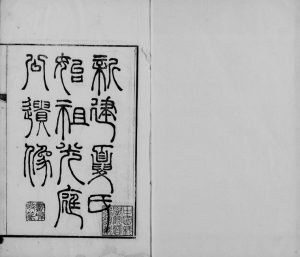 新建夏氏
始祖光庭
公遺像